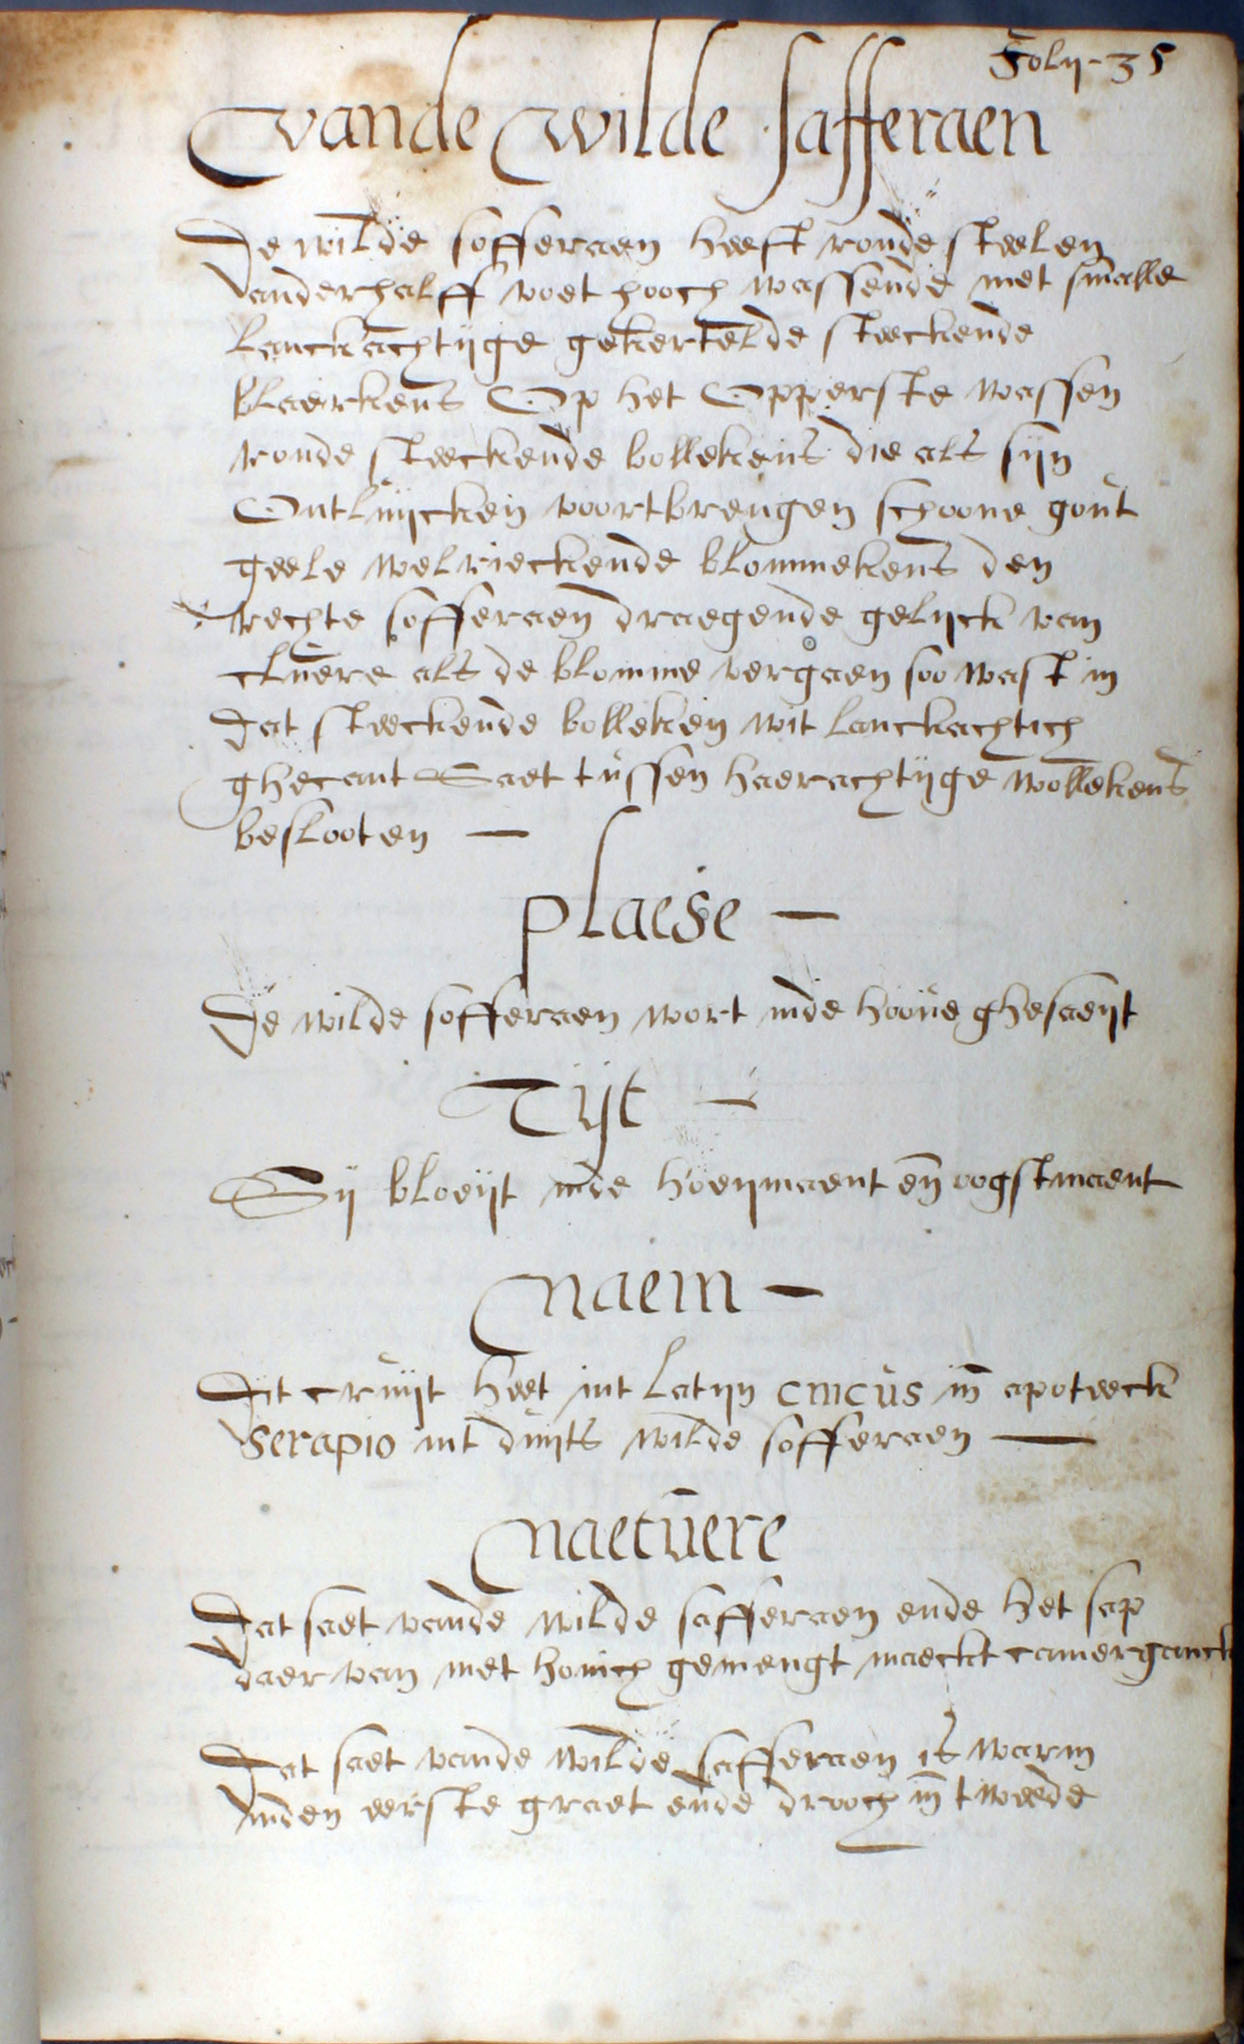 Folij - 35
vande wilde safferaen
De wilde sofferaen heeft ronde steelen
anderhalff voet hooch wassende met smalle
lanckachtijge gekertelde steeckende
blaerkens Op het Opperste wassen
ronde steeckende bollekens die als sijn
Ontluijcken voortbrengen schoone gout
geele welrieckende blommekens den
rechte sofferaen draegende gelijck van
cluere als de blomme vergaen soo wast in
Dat steeckende bolleken wit lanckachtich
ghecant Saet tussen haerachtijge wollekens
beslooten —
plaese —
De wilde sofferaen wort inde hoove ghesaeijt
Tijt —
Sij bloeijt inde hoeijmaent en̄ oogstmaent
naem —
Dit cruijt heet int latijn cnicus in̄ apoteeck
serapio int duijts wilde sofferaen —
naetuere
Dat saet vande wilde safferaen ende het sap
daer van met honich gemengt maeckt camerganck
Dat saet vande wilde safferaen is warm
inden eerste graet ende drooch in̄ tweede